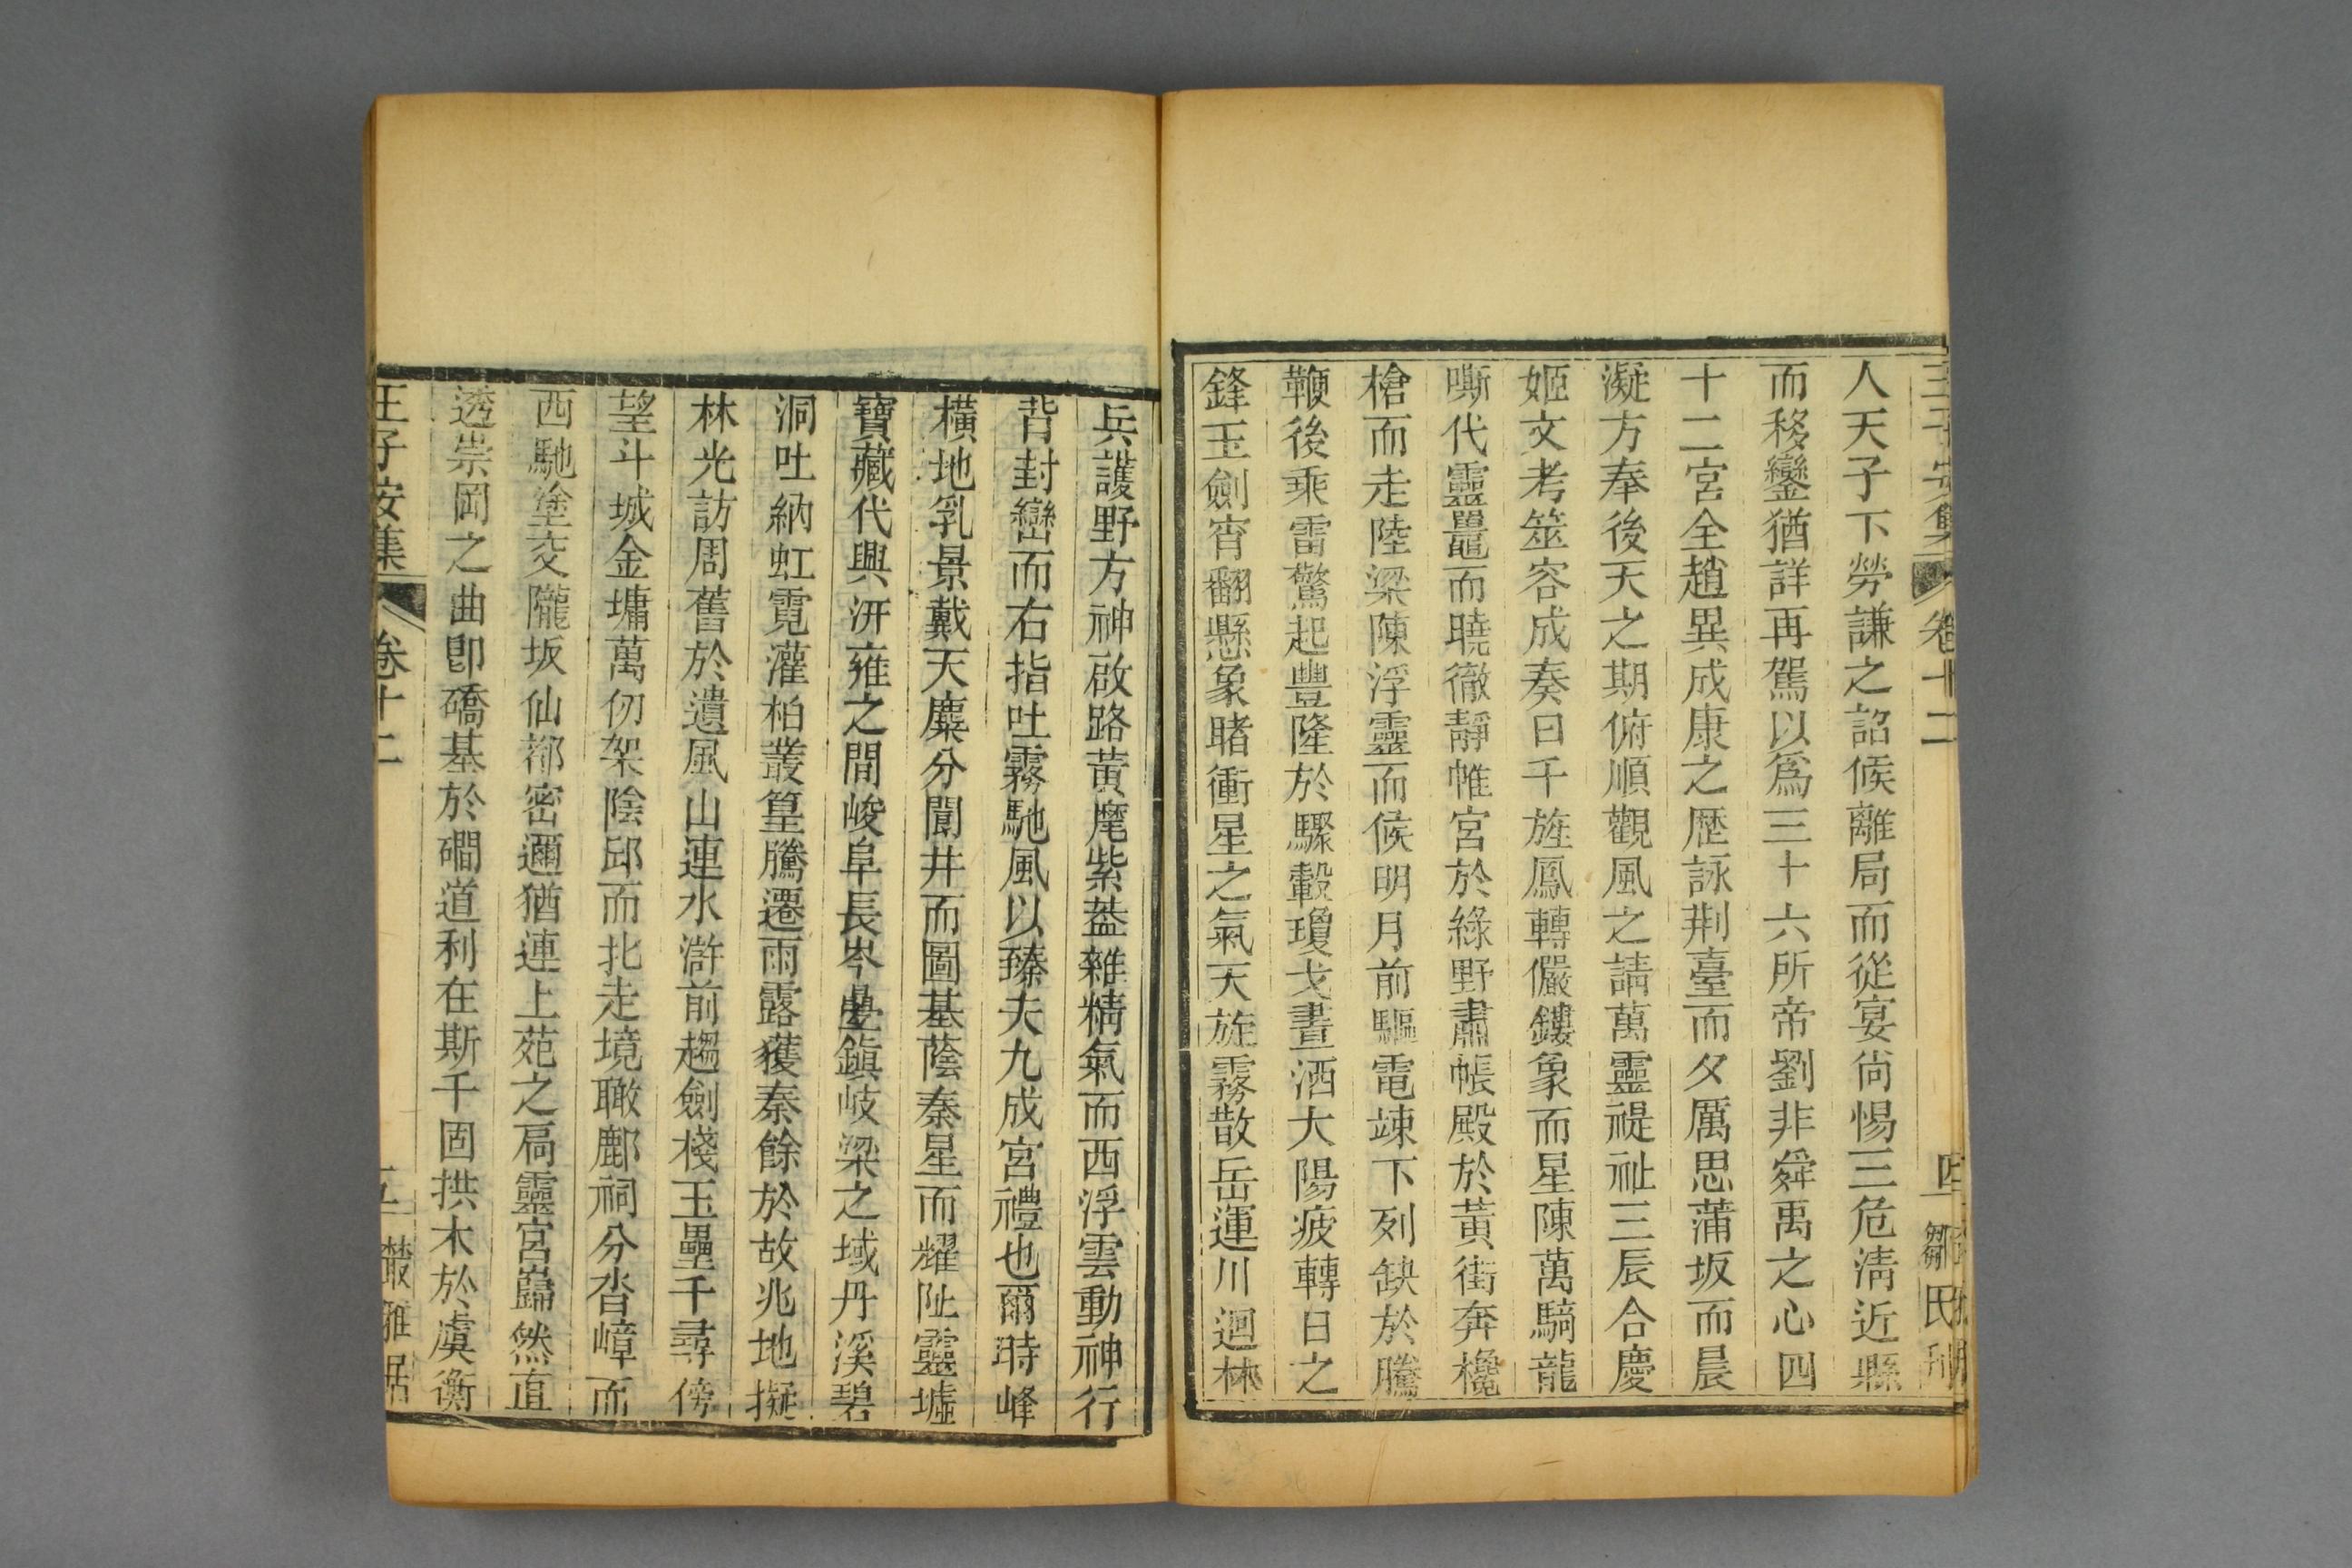 王子安集 卷十二 四 鄒氏刊
人天子下勞謙之詔候離局而從宴尙惕三危淸近縣
而移鑾猶詳再駕以爲三十六所帝劉非舜禹之心四
十二宮全趙異成康之歷詠荆臺而夕厲思蒲坂而晨
凝方奉後天之期俯順觀風之請萬靈禔祉三辰合慶
姬文考筮容成奏日千旌鳳轉儼鏤象而星陳萬騎龍
嘶代靈鼉而曉徹靜帷宮於綠野肅帳殿於黃街奔欃
槍而走陸梁陳浮靈而候明月前驅電竦下列缺於騰
鞭後乘雷驚起豐隆於驟轂瓊戈晝洒大陽疲轉日之
鋒玉劍宵翻懸象睹衝星之氣天旌霧散岳運川迴林
兵護野方神啟路黃麾紫葢雜精氣而西浮雲動神行
背封巒而右指吐霧馳風以臻夫九成宮禮也爾時峰
橫地乳景戴天麋分閶井而圖基蔭秦星而耀阯靈墟
寶藏代興汧雍之間峻阜長岑疊鎭岐梁之域丹溪碧
洞吐納虹霓灌柏叢篁騰遷雨露獲秦餘於故兆地擬
林光訪周舊於遺風山連水滸前趨劍棧玉壘千尋傍
望斗城金墉萬仞架陰邱而北走境瞰鄜祠分沓嶂而
西馳塗交隴坂仙都密邇猶連上苑之扃靈宮巋然直
透崇岡之曲卽礄基於磵道利在斯千固拱木於虞衡
王子安集 卷十二 五 叢雅居